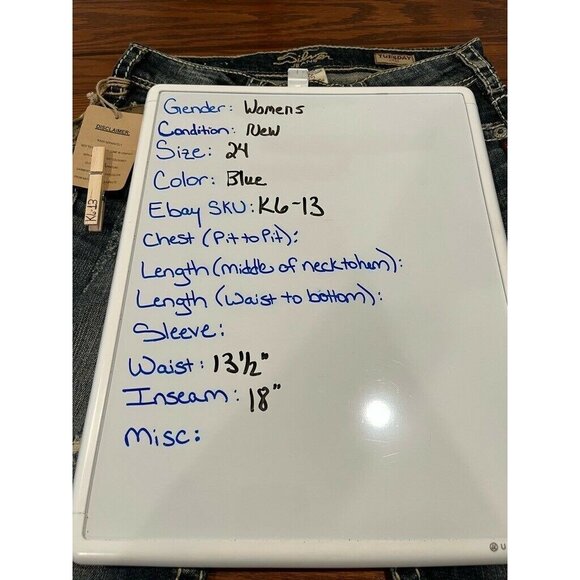 Silver
TUESDAY
DISCLAIMER:
K6-13
Gender: Womens
Condition: New
Size: 24
Color: Blue
Ebay SKU: K6-13
Chest (Pit to Pit):
Length (middle of neck to hem):
Length (Waist to bottom):
Sleeve:
Waist: 13 1/2"
Inseam: 18"
Misc:
U